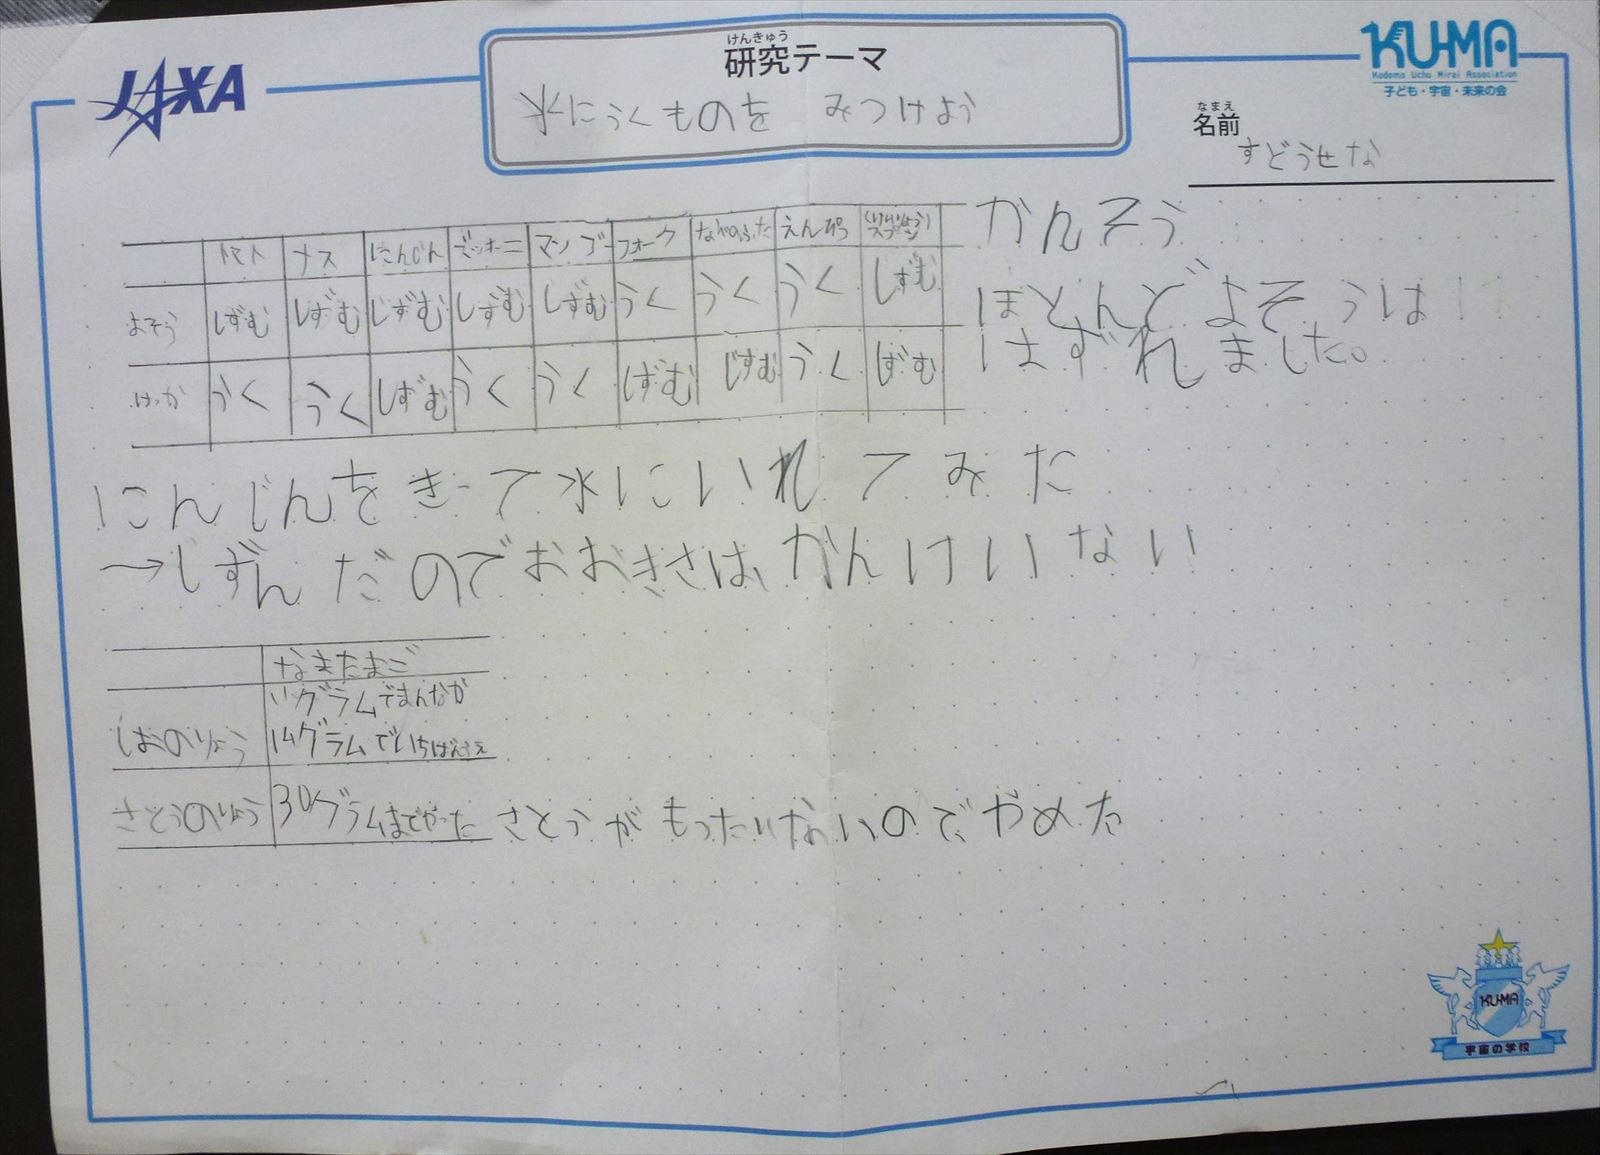 JAXA
けんきゅう
研究テーマ
水にうくものを みつけよう
KU-MA
Kodomo Uchu Mirai Association
子ども・宇宙・未来の会
なまえ
名前
すどうせな
トマト ナス にんじん ズッキーニ マンゴー フォーク なべのふた えんぴつ スプーン
よそう しずむ しずむ しずむ しずむ しずむ うく うく うく しずむ
けっか うく うく しずむ うく うく しずむ しずむ うく しずむ
かんそう
ほとんどよそうは
はずれました。
にんじんをきって水にいれてみた
→しずんだのでおおきさは、かんけいない
なまたまご
しおのりょう 11グラムでまんなか
14グラムでいちばんうえ
さとうのりょう 30グラムまでやった さとうがもったいないのでやめた
KU-MA
宇宙の学校